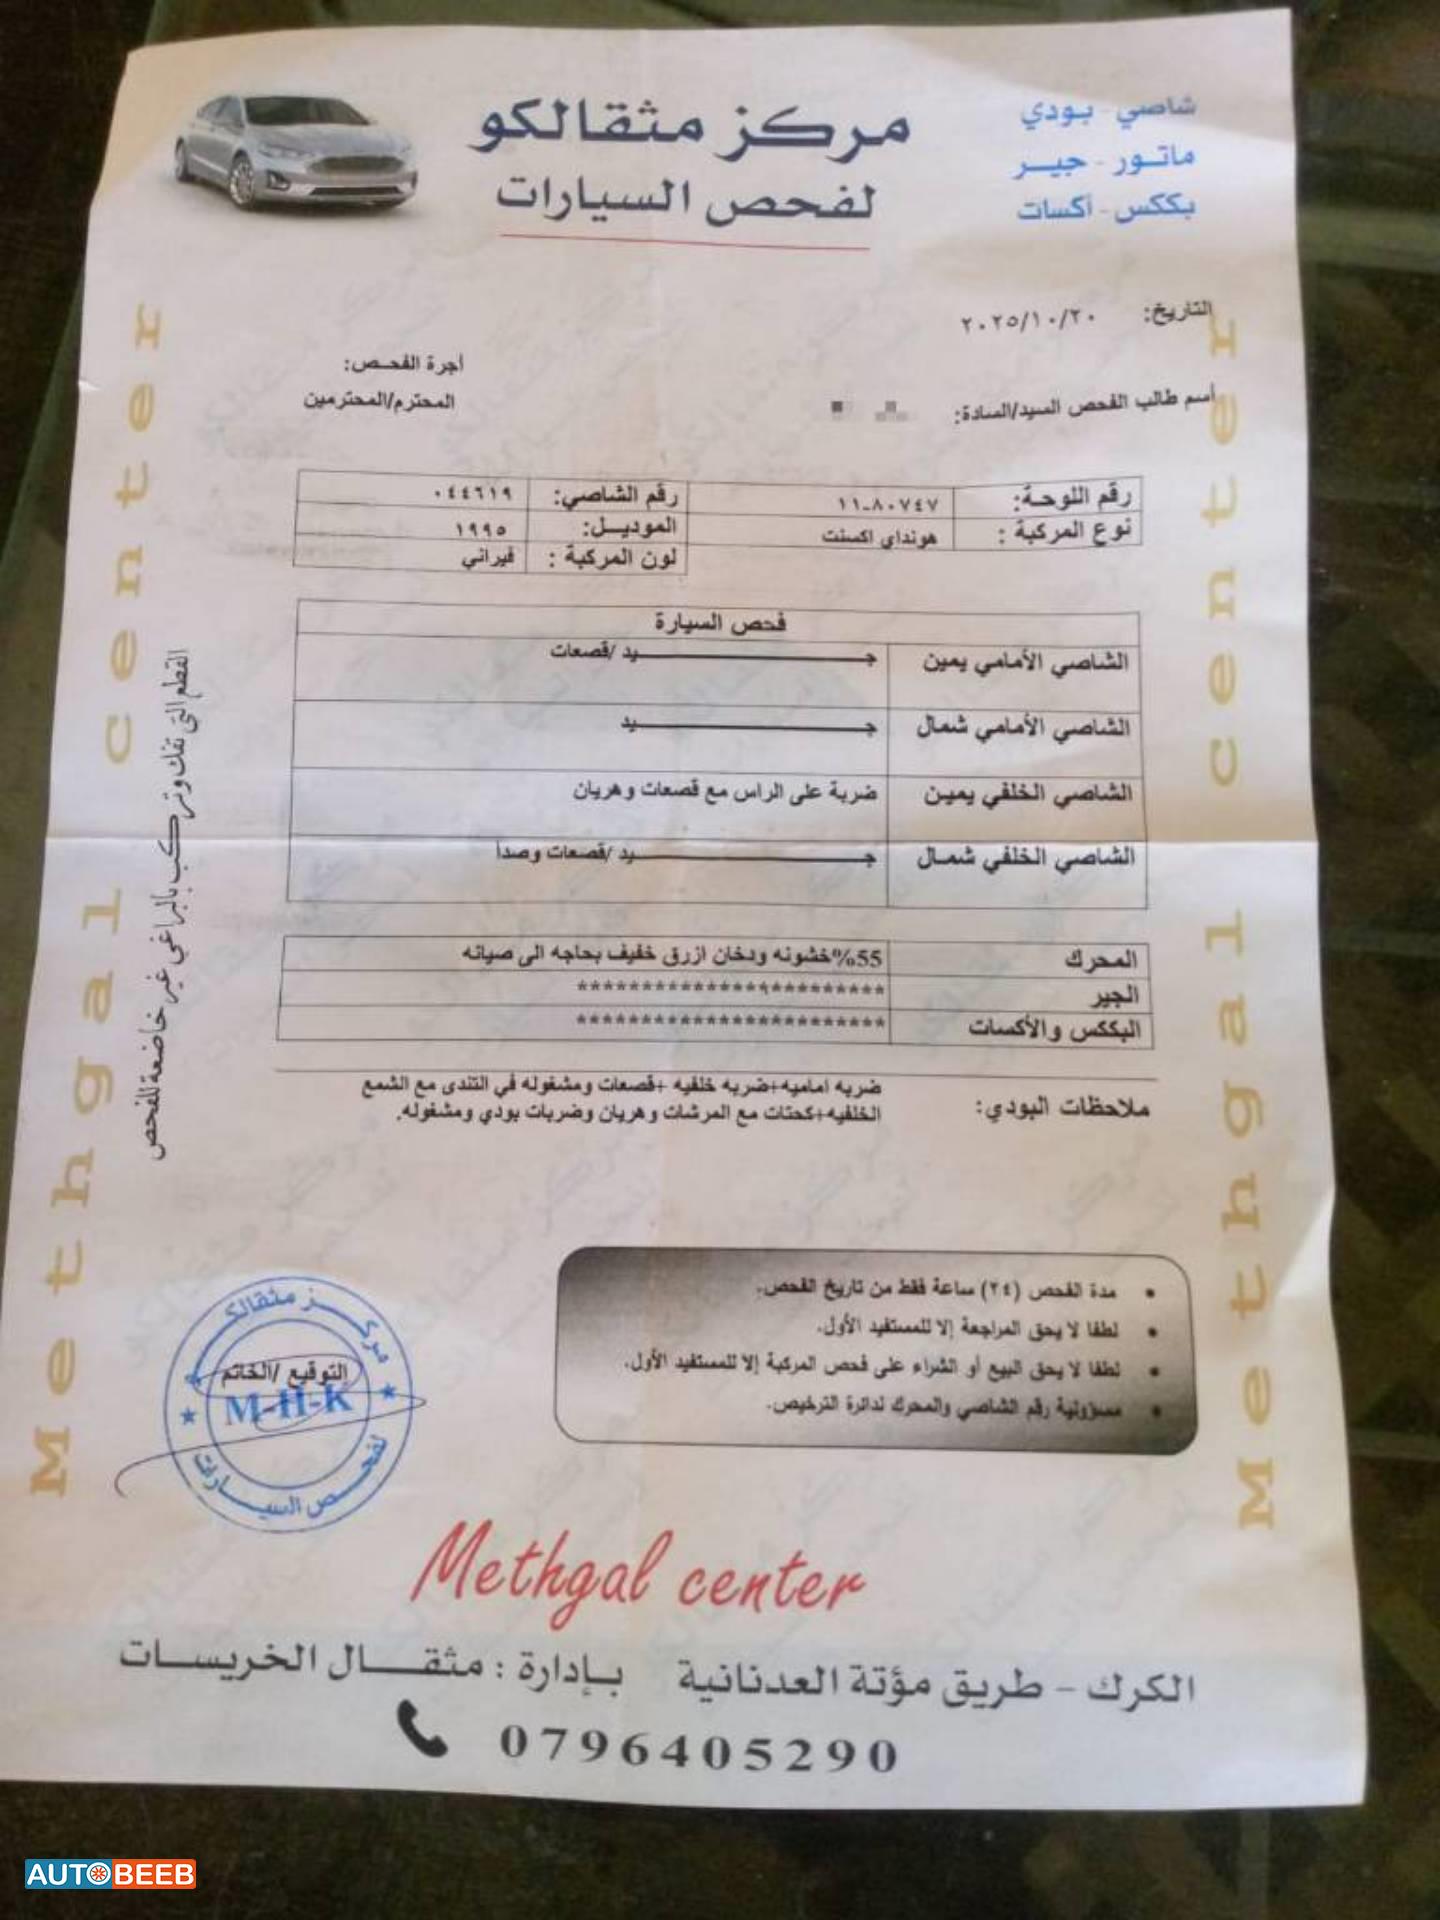 شاصي - بودي
ماتور - جير
بككس - أكسات
مركز مثقالكو
لفحص السيارات
التاريخ: ٢٠٢٥/١٠/٢٠
أجرة الفحص:
أسم طالب الفحص السيد/السادة:
المحترم/المحترمين
رقم اللوحة: ١١-٨٠٧٤٧ رقم الشاصي: ٠٤٤٦١٩
نوع المركبة : هونداي اكسنت الموديل: ١٩٩٥
لون المركبة : فيراني
فحص السيارة
الشاصي الأمامي يمين جـــــــــيد /قصعات
الشاصي الأمامي شمال جـــــــــيد
الشاصي الخلفي يمين ضربة على الراس مع قصعات وهريان
الشاصي الخلفي شمال جـــــــــيد /قصعات وصدأ
المحرك 55%خشونه ودخان ازرق خفيف بحاجه الى صيانه
الجير ************************
البككس والأكسات ************************
ملاحظات البودي: ضربه اماميه+ضربه خلفيه +قصعات ومشغوله في التندى مع الشمع
الخلفيه+كحتات مع المرشات وهريان وضربات بودي ومشغوله.
القطع التي تفك وتركب بالبراغي غير خاضعة للفحص
• مدة الفحص (٢٤) ساعة فقط من تاريخ الفحص.
• لطفا لا يحق المراجعة إلا للمستفيد الأول.
• لطفا لا يحق البيع أو الشراء على فحص المركبة إلا للمستفيد الأول.
• مسؤولية رقم الشاصي والمحرك لدائرة الترخيص.
مركز مثقالكو
التوقيع /الخاتم
M-H-K
لفحص السيارات
Methgal center
الكرك - طريق مؤتة العدنانية بإدارة : مثقال الخريسات
0796405290
Methgal center
Methgal center
AUTOBEEB